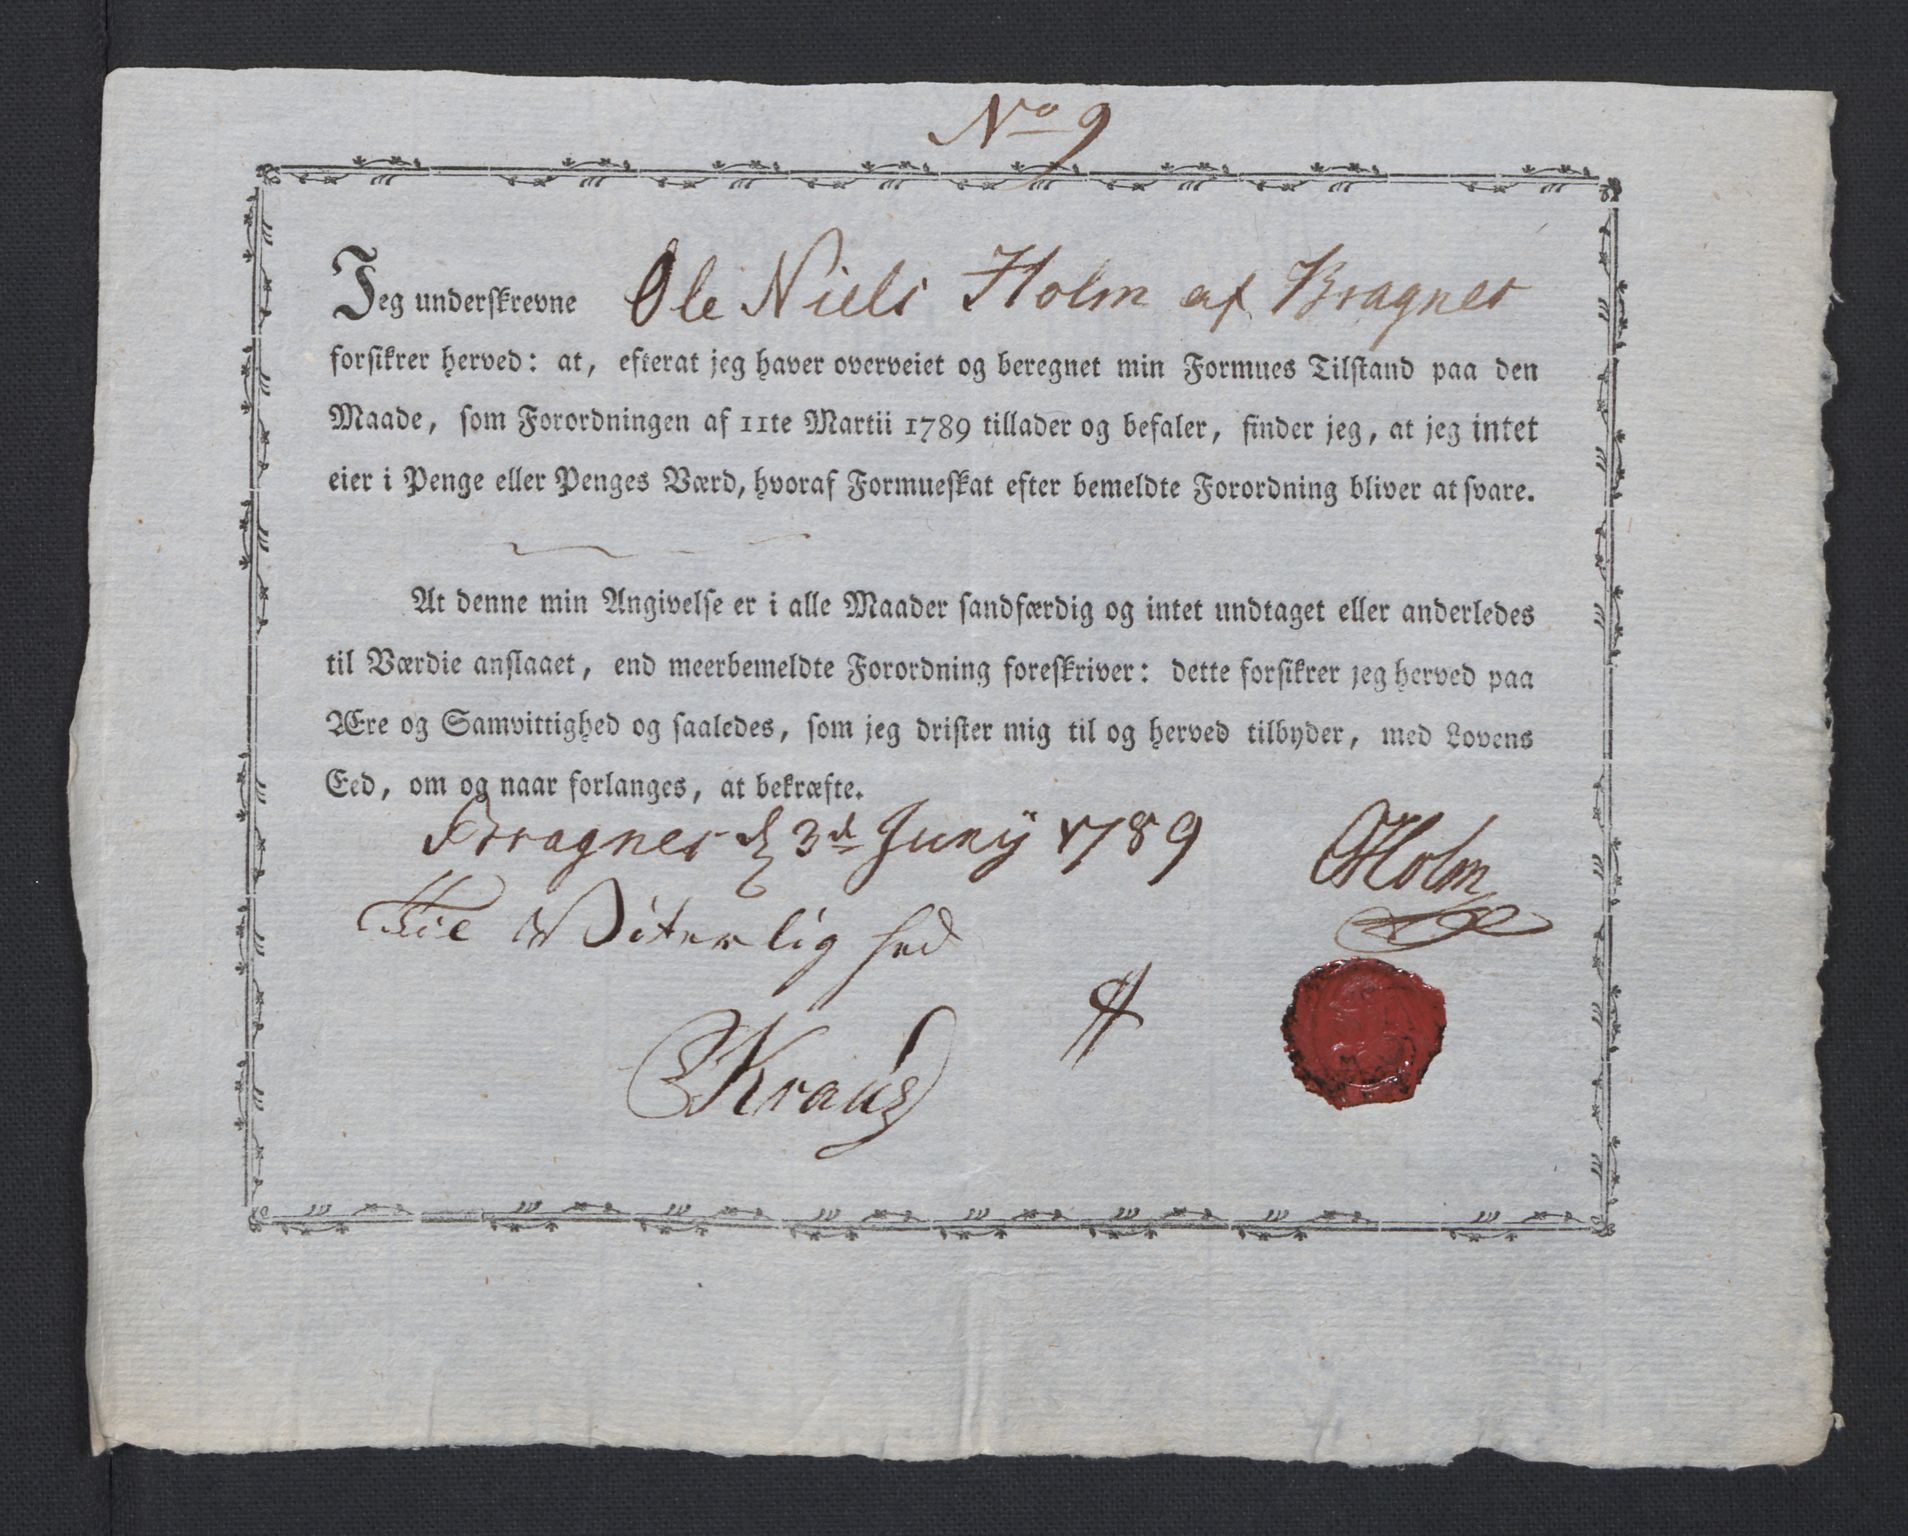 No 9
Jeg underskrevne Ole Niels Holm af Bragnes
forsikrer herved: at, efterat jeg haver overveiet og beregnet min Formues Tilstand paa den
Maade, som Forordningen af 11te Martii 1789 tillader og befaler, finder jeg, at jeg intet
eier i Penge eller Penges Værd, hvoraf Formueskat efter bemeldte Forordning bliver at svare.
At denne min Angivelse er i alle Maader sandfærdig og intet undtaget eller anderledes
til Værdie anslaaet, end meerbemeldte Forordning foreskriver: dette forsikrer jeg herved paa
Ære og Samvittighed og saaledes, som jeg drister mig til og herved tilbyder, med Lovens
Eed, om og naar forlanges, at bekræfte.
Bragnes d 3d Junÿ 1789
Holm
Til Viterlighed
Kraus